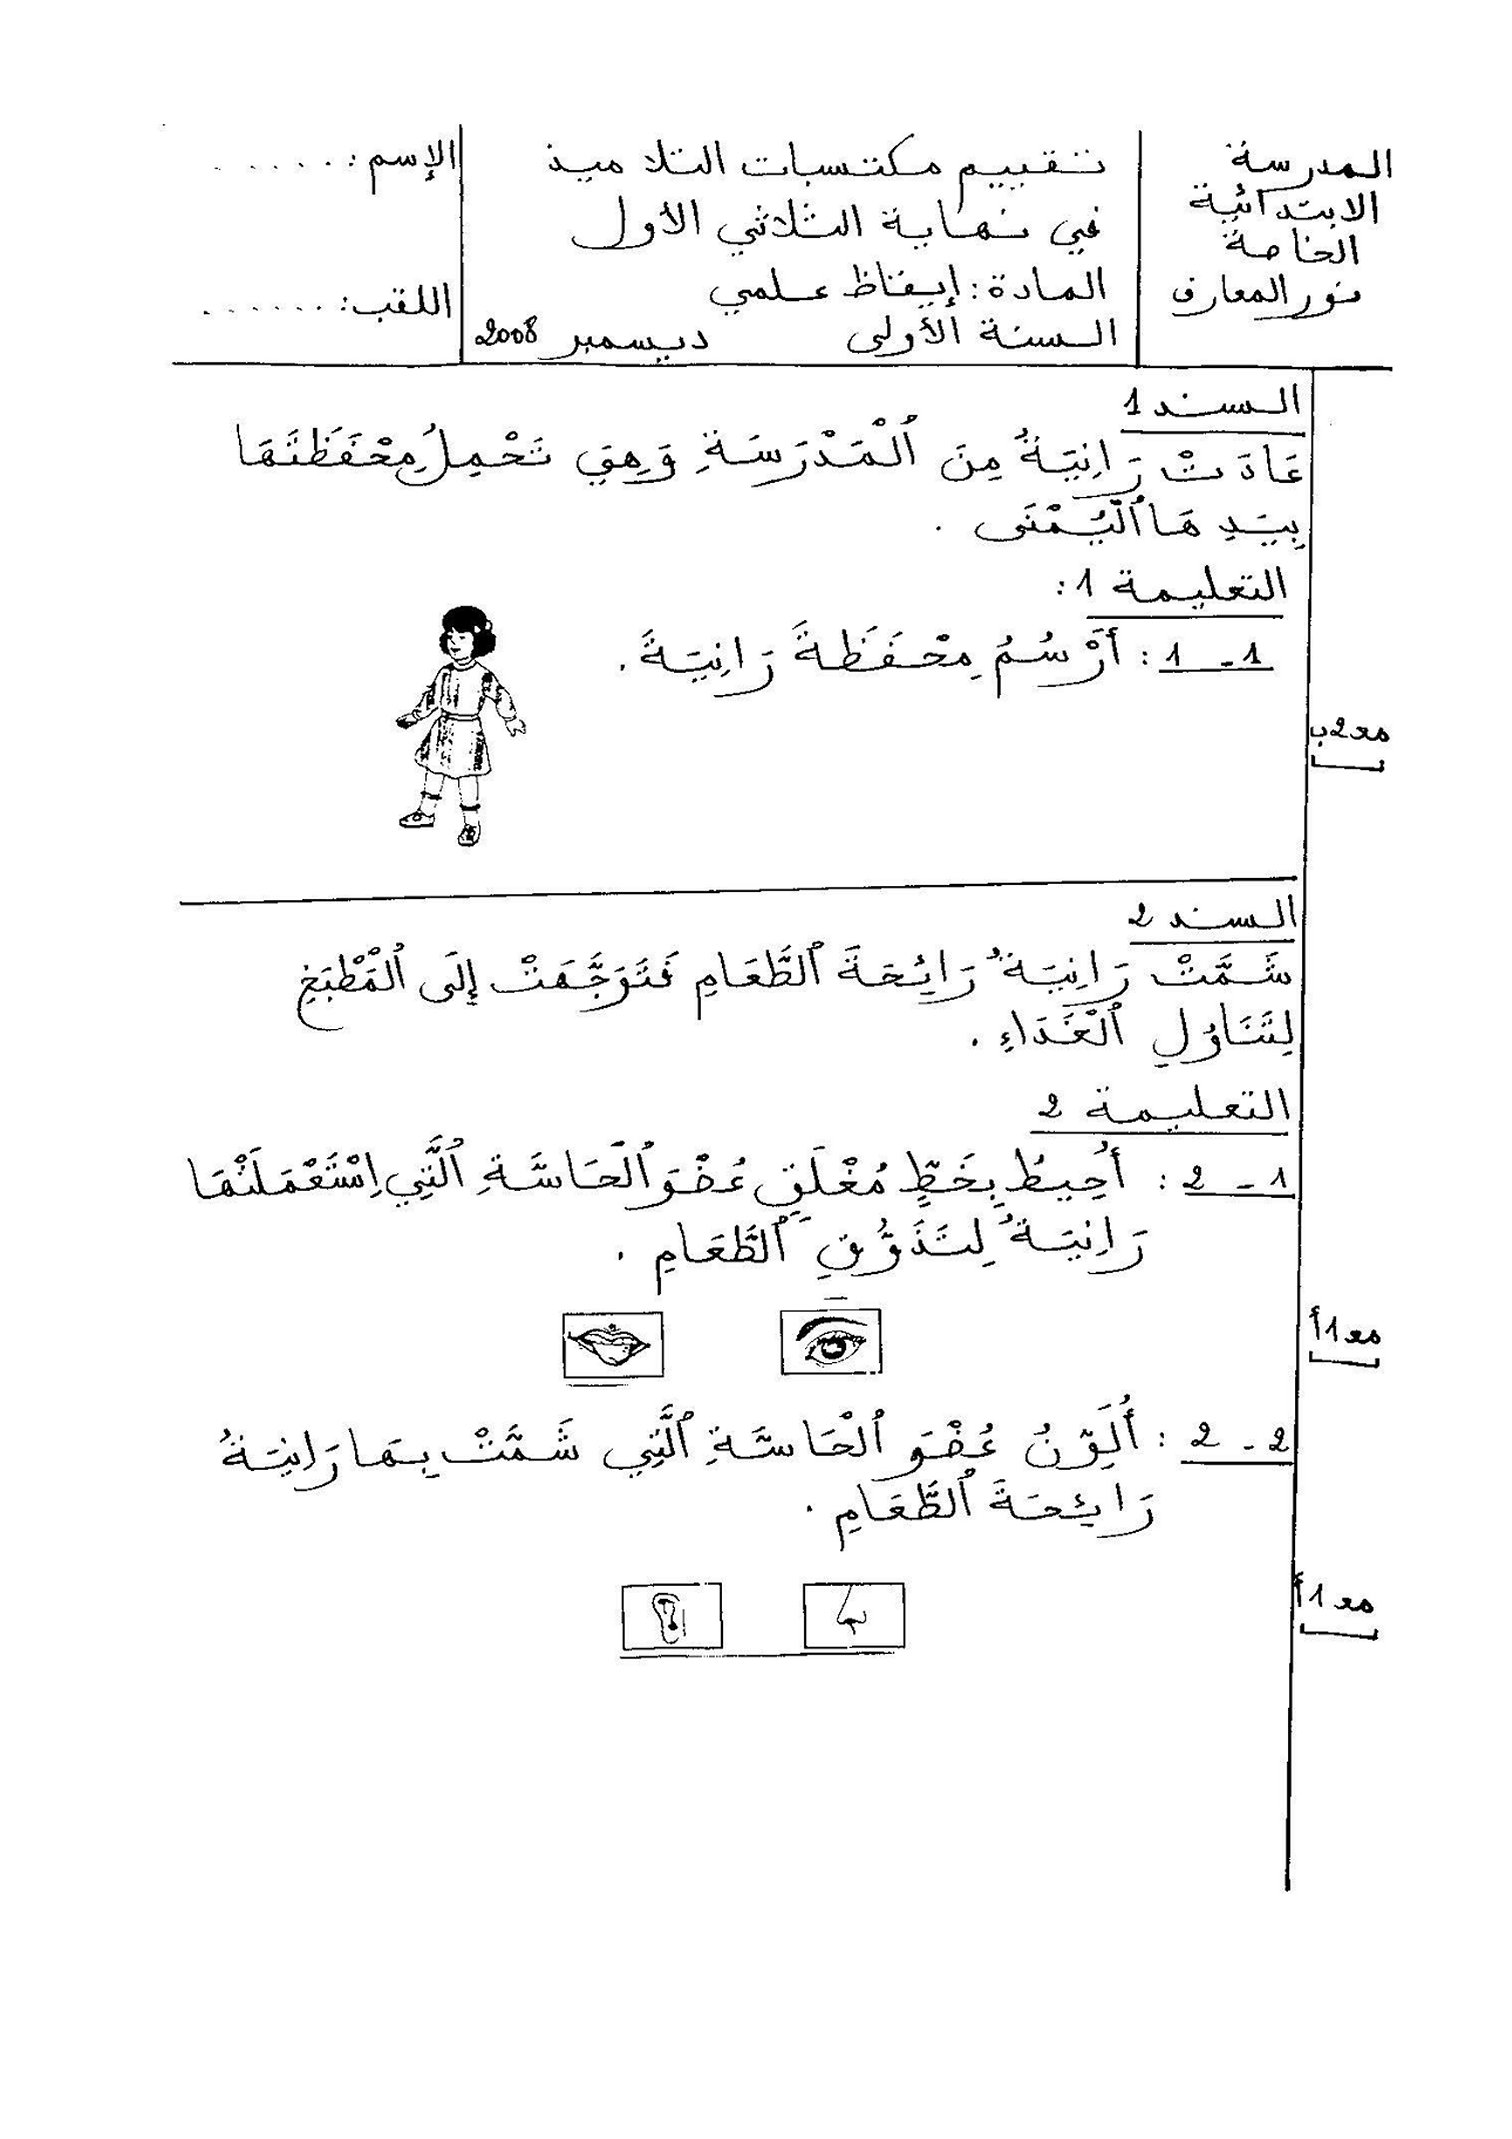 المدرسة
الابتدائية
الخاصة
نور المعارف
تقييم مكتسبات التلاميذ
في نهاية الثلاثي الأول
المادة : إيقاظ علمي
السنة الأولى ديسمبر 2008
الإسم : . . . . . .
اللقب : . . . . . .
السند 1
عَادَتْ رَانِيَةُ مِنَ ٱلْمَدْرَسَةِ وَهِيَ تَحْمِلُ مِحْفَظَتَهَا
بِيَدِهَا ٱلْيُمْنَى .
التعليمة 1 :
1 - 1 : أَرْسُمُ مِحْفَظَةَ رَانِيَةَ .
مع2ب
السند 2
شَمَّتْ رَانِيَةُ رَائِحَةَ ٱلطَّعَامِ فَتَوَجَّهَتْ إِلَى ٱلْمَطْبَخِ
لِتَنَاوُلِ ٱلْغَدَاءِ .
التعليمة 2
1 - 2 : أُحِيطُ بِخَطٍّ مُغْلَقٍ عُضْوَ ٱلْحَاسَّةِ ٱلَّتِي اِسْتَعْمَلَتْهَا
رَانِيَةُ لِتَذَوُّقِ ٱلطَّعَامِ .
مع1أ
2 - 2 : أُلَوِّنُ عُضْوَ ٱلْحَاسَّةِ ٱلَّتِي شَمَّتْ بِهَا رَانِيَةُ
رَائِحَةَ ٱلطَّعَامِ .
مع1أ